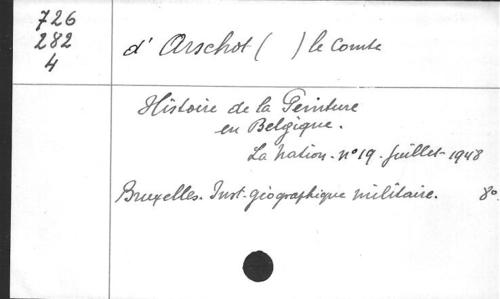 726
282
4
d' Arschot ( ) le Comte
Histoire de la Peinture
en Belgique.
La Nation. n° 19. Juillet 1948
Bruxelles. Inst. géographique militaire. 8°.